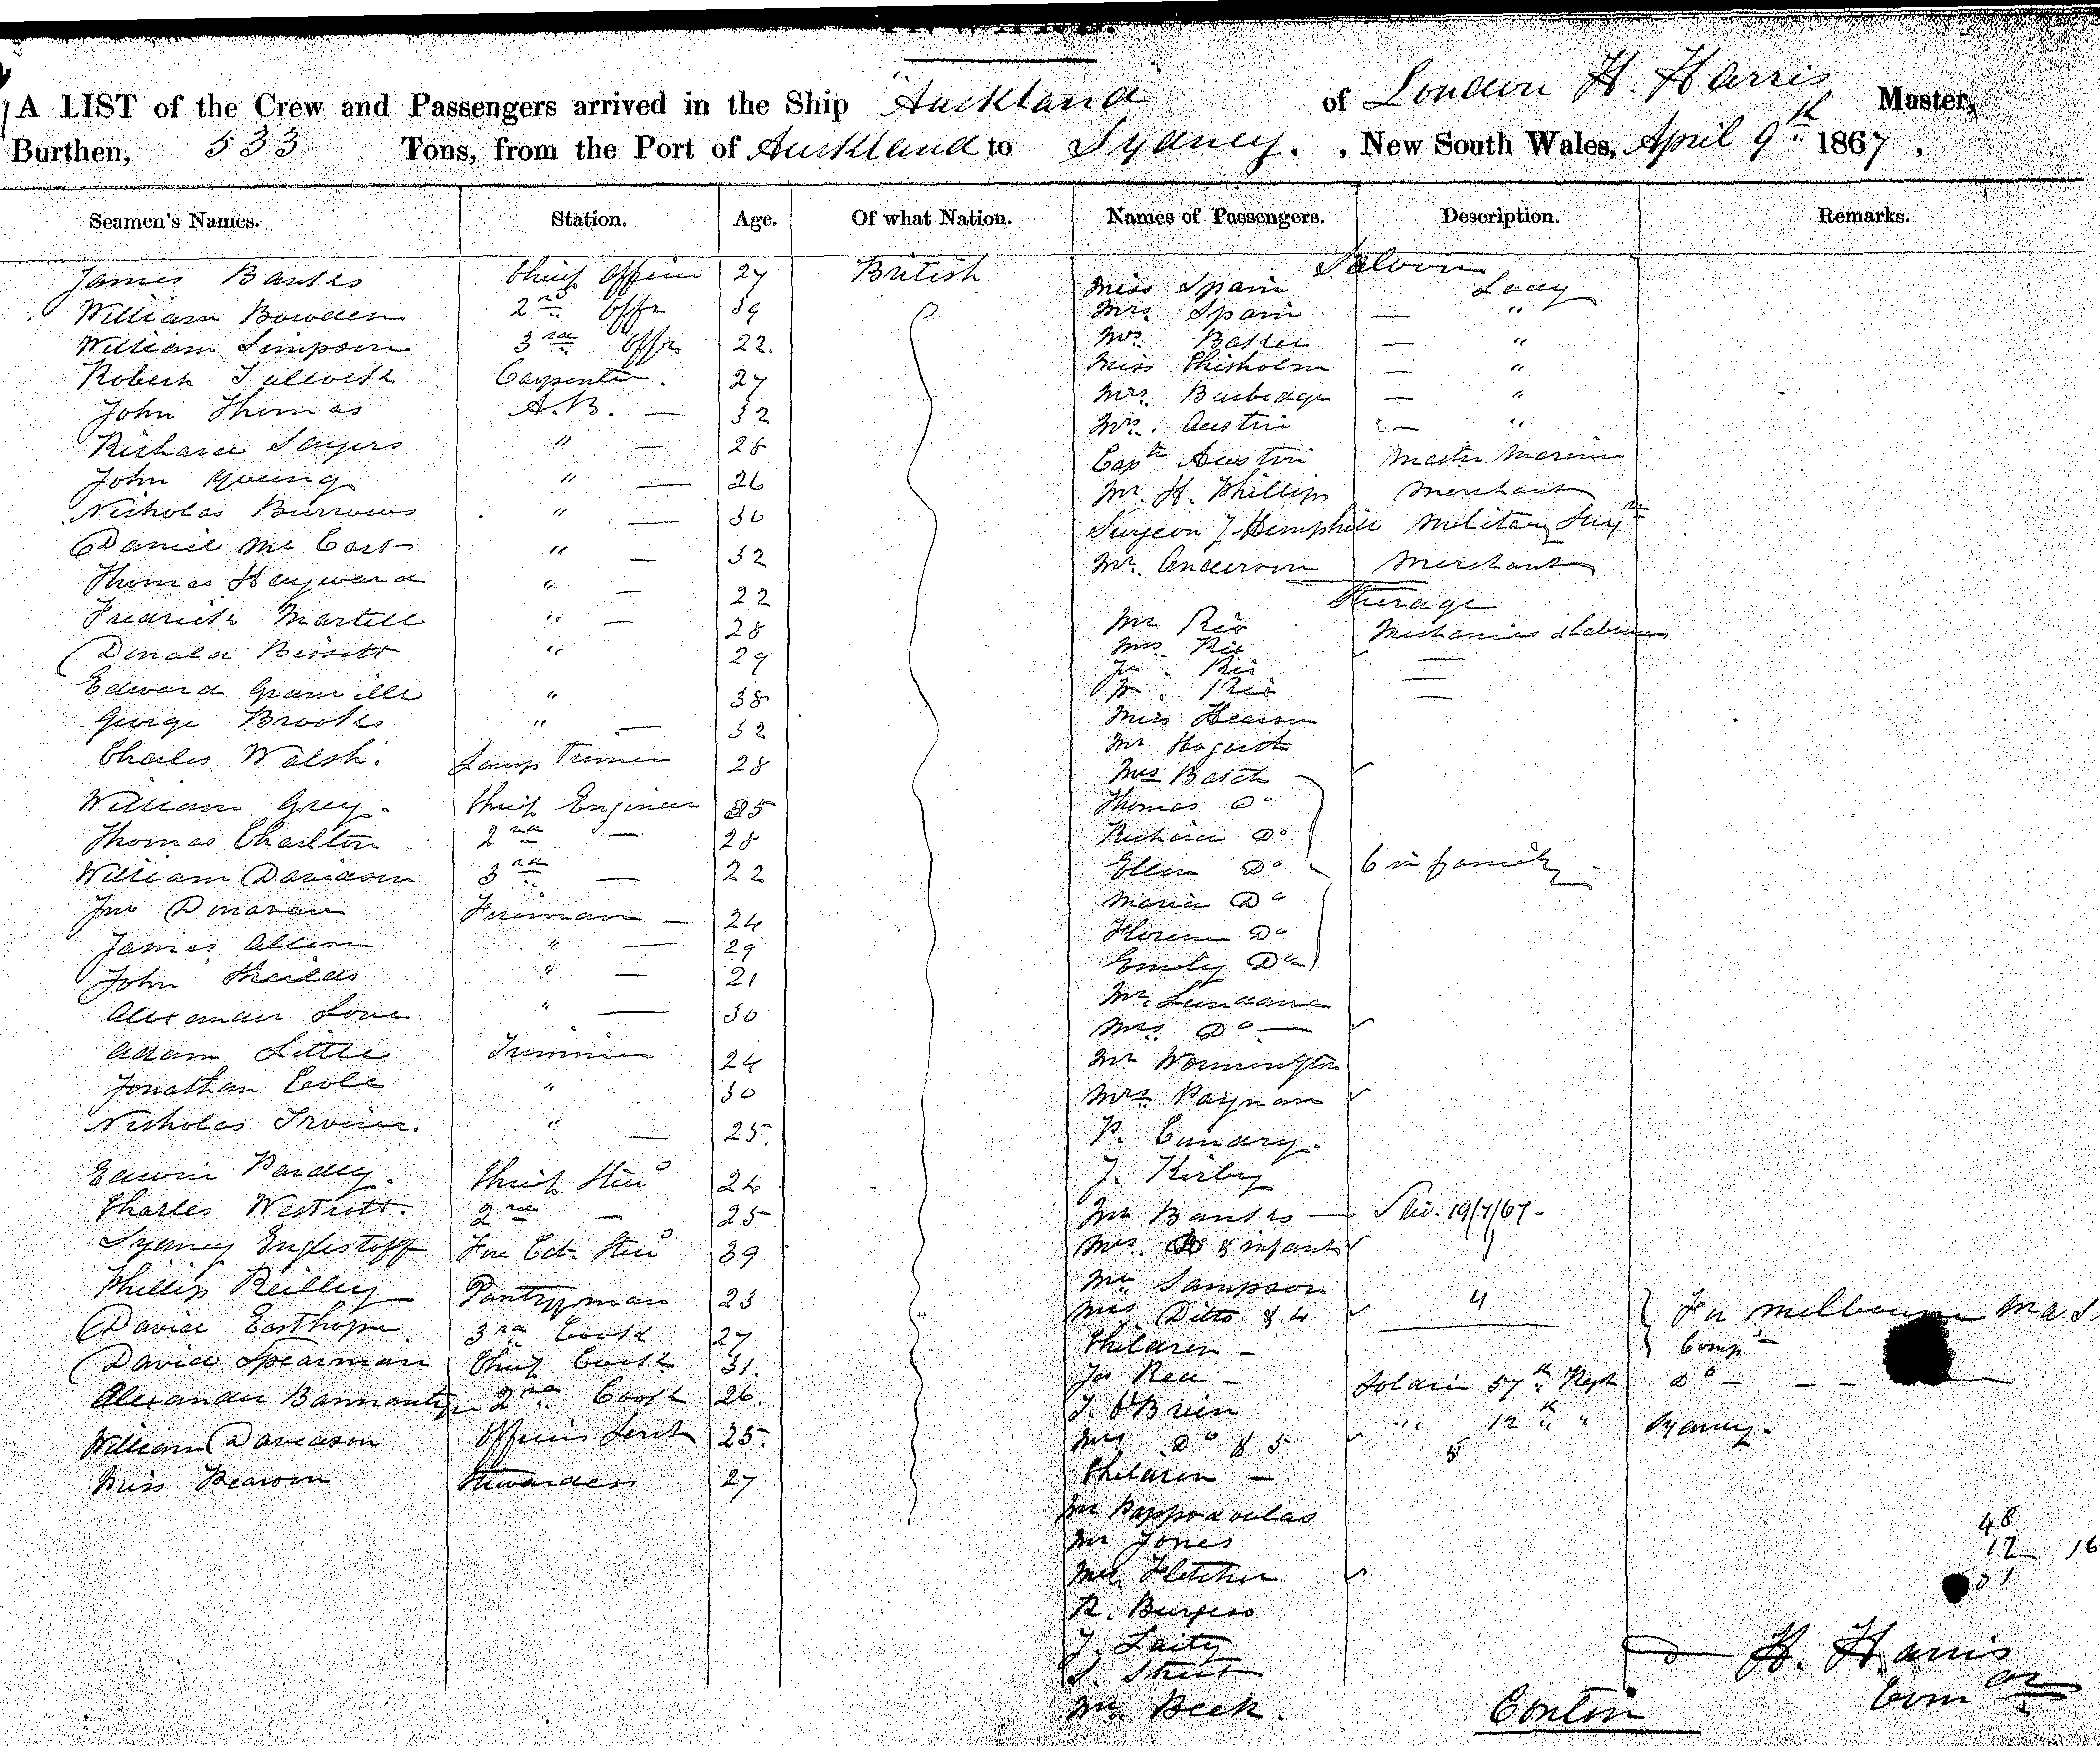 A LIST of the Crew and Passengers arrived in the Ship "Auckland" of London H. Harris Master,
Burthen, 533 Tons, from the Port of Auckland to Sydney. , New South Wales, April 9th 1867.
Seamen's Names. Station. Age. Of what Nation. Names of Passengers. Description. Remarks.
James Banks Chief Officer 27 British
William Bowden 2nd Offr 39
William Simpson 3rd Offr 22.
Robert Carpenter. 27
John Thomas A.B. — 32
Richard Sayers " — 28
John Young " — 26
Nicholas Burrows " — 30
Daniel " — 32
Thomas Hayward " — 22
Fredrick Martell " — 28
Donald Bissett " 29
Edward Granville " 38
George Brooks " — 32
Charles Walsh. Lamp Trimer 28
William Grey. Chief Engineer 35
Thomas Charlton 2nd — 28
William Davidson 3rd — 22
Jno Donavan Fireman — 24
James Allison " — 29
John Sheilds " — 21
Alexander Love " — 30
Adam Little Trimmer 24
Jonathan Cole " 30
Nicholas Irvine. " — 25.
Edwin Pardey. Chief Stewd 24
Charles Westcott. 2nd — 25
Sydney Fore Cab. Stewd 39
Phillip Reilley Pantryman 23
David Easthope 3rd Cook 27
David Spearman Chief Cook 31.
Alexander 2nd Cook 26.
William Davidson Officers Servt 25.
Miss Stewardess 27
Saloon
Miss Spain Lady
Mrs Spain — "
Mrs — "
Miss Chisholm — "
Mrs Burbidge — "
Mrs. Austin — "
Capt Austin Master Marine
Mr H. Phillips Merchant
Surgeon J Hemphill Military
Mr Anderson Merchant
Steerage
Mr Mechanics & Labourers
Mrs
Miss
Mr Hogarth
Mrs Batch
Thomas Do
Richard Do
Ellen Do 6 in family
Maria Do
Do
Emily Do
Mr
Mrs Do —
Mr Wormington
Mrs Paynan
P. Cundry.
J. Kirby
Mr Banks — 19/4/67.
Mrs Do & infant
Mr Sampson
Mrs Ditto & 4 4 For Melbourne
Children —
Jas — Soldier 57th Regt Do — — —
J. O'Brien " 12th " Sydney.
Mrs Do & 5 5
Children —
Mr
Mr Jones
Mrs Fletcher
R. Burgess
J. Laity
S. Street
Mr Beek.
48
12 16
H. Harris
Comdr
Contin